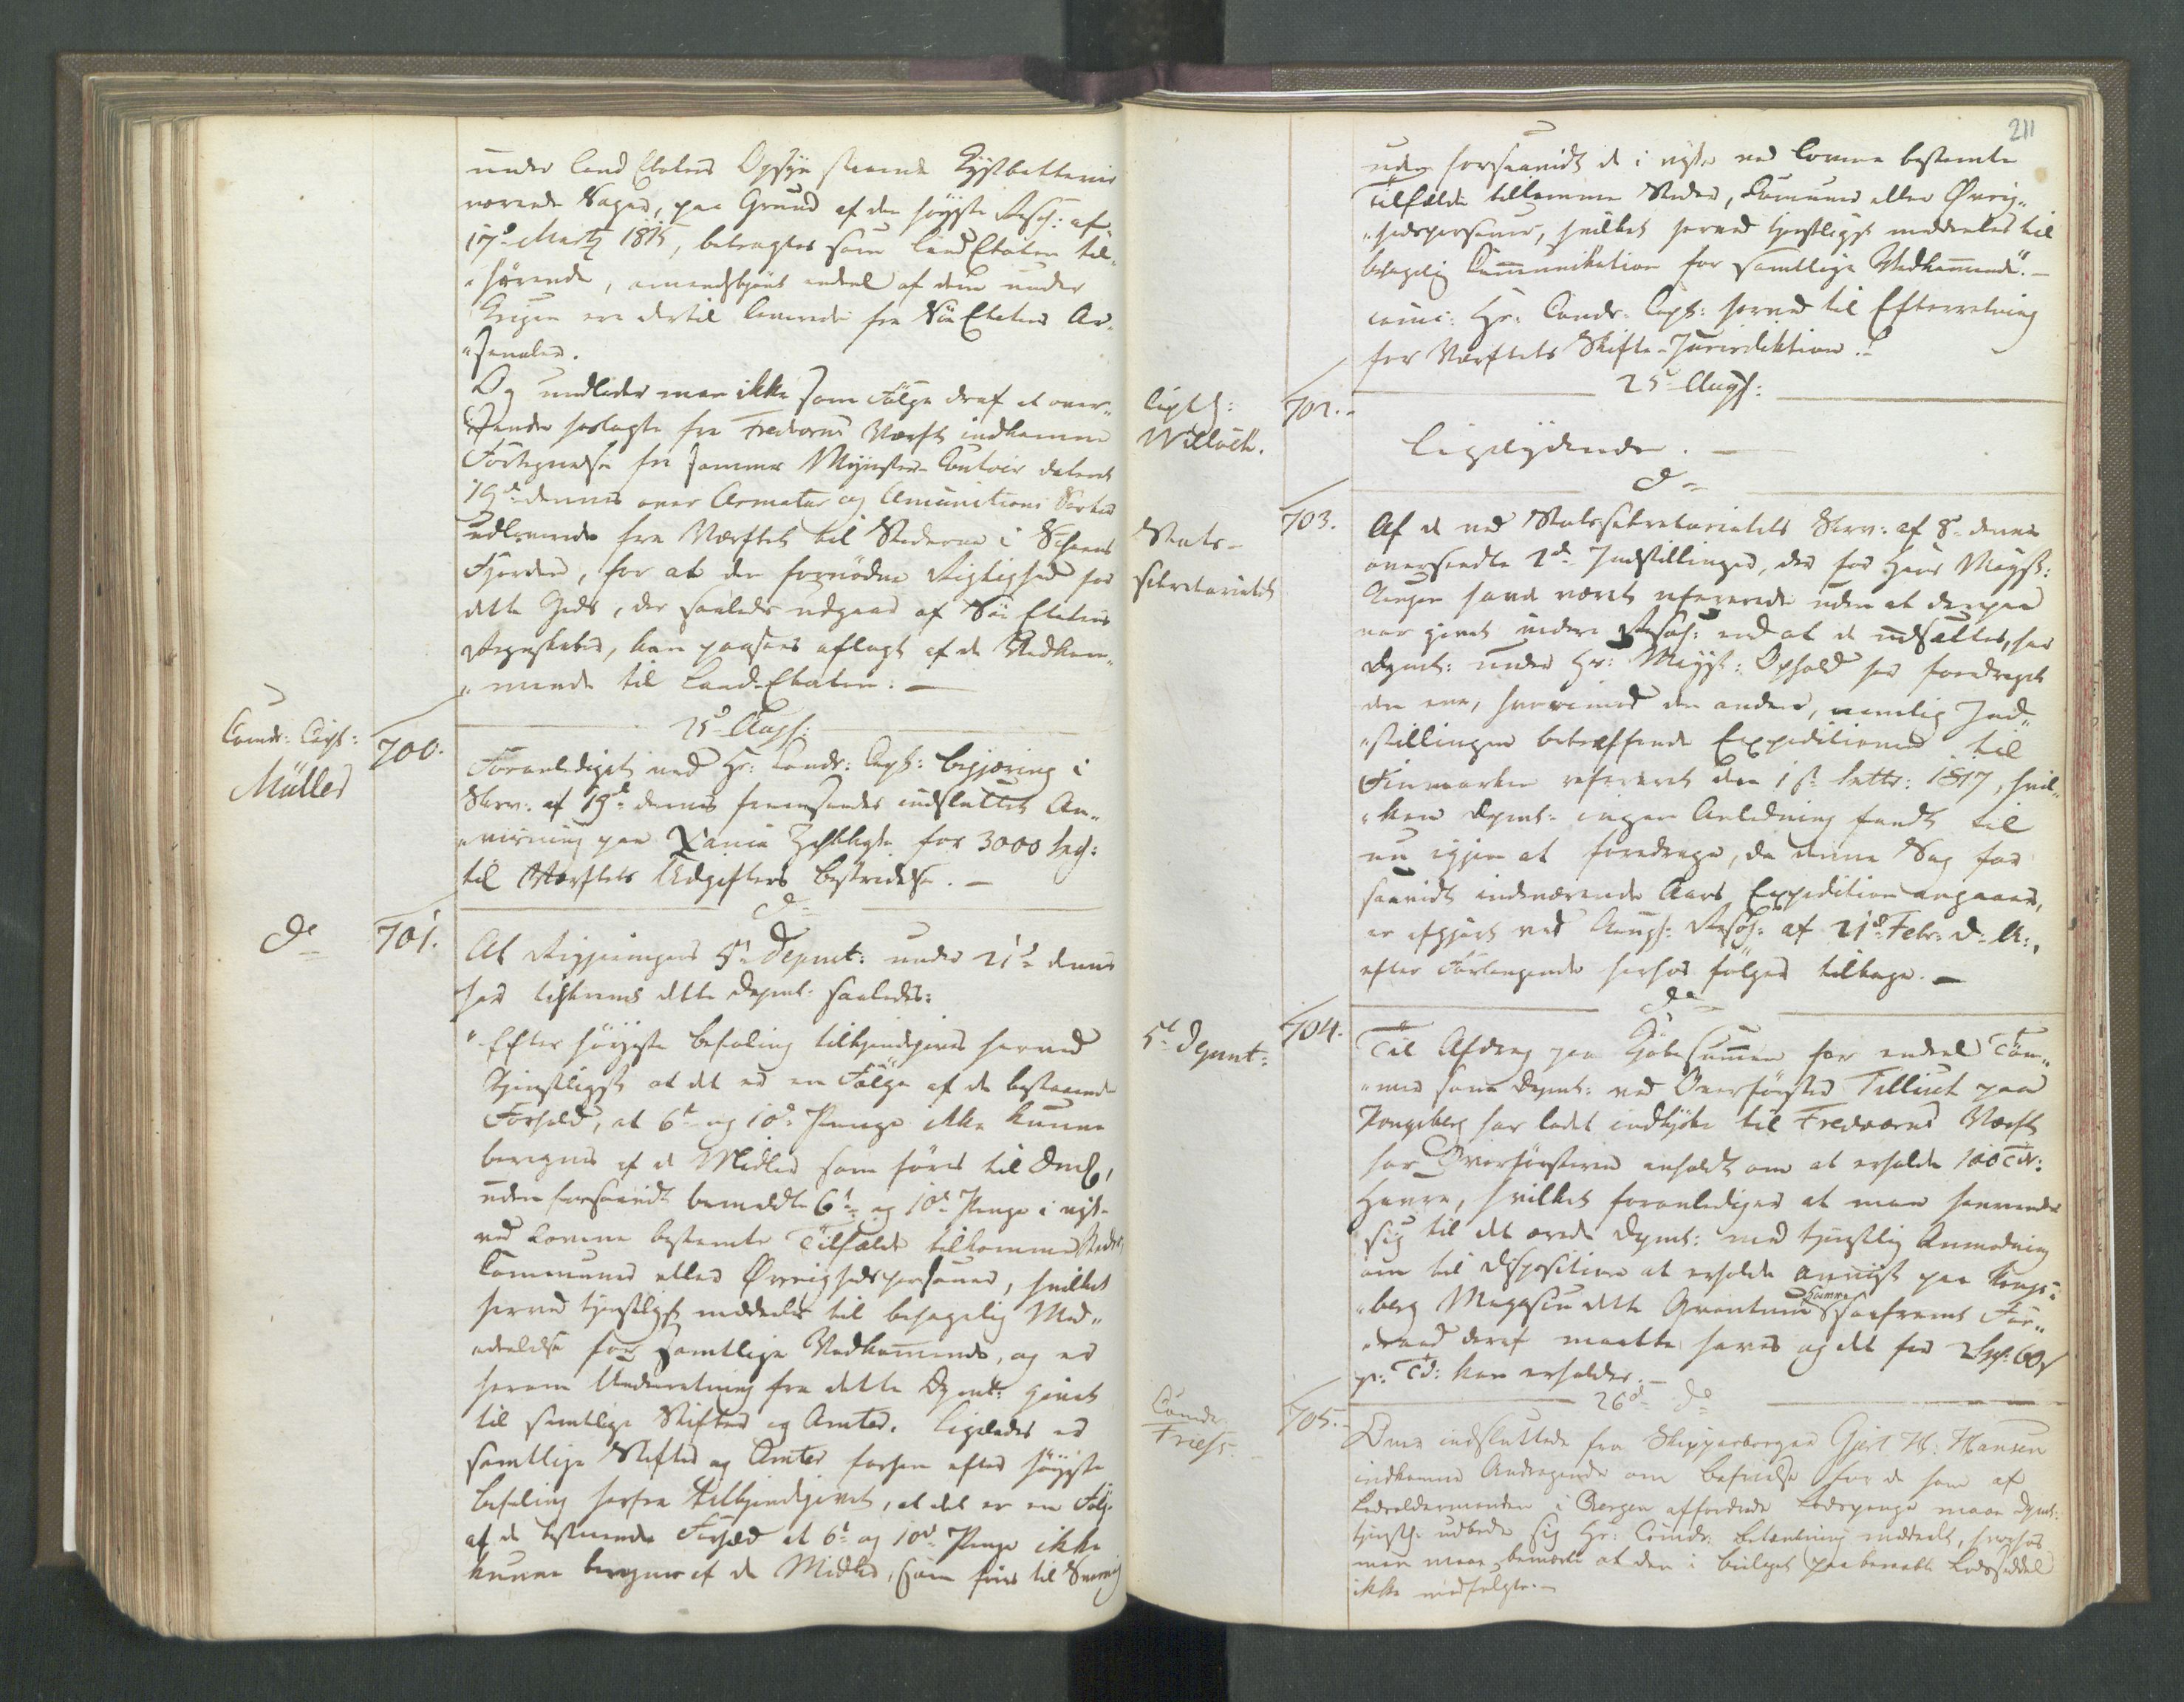 under Land Etatens Opsyn staaende Kystbatterier
værende Sager, paa Grund af den høyeste Resol: af
17d Martz 1815, betragtes som Land Etaten til-
"hørende, uanseet endeel af dem under
Krigen ere dertil leverede fra Søe Etatens Ar-
"senaler.
Og undlader man ikke som Følge deraf at over-
sende hoslagte fra Fredværns Værft indkomne
Fortegnelse fra sammes Mynster-Contoir dateret
19de dennes over Armatur og Amunitions Sorter
udleverede fra Værftet til Stederne i
Fjorden, for at den fornødne Rigtighed for
dette Gods, der saaledes udgaaer af Søe Etatens
Regnskaber, kan paasees aflagt af de Vedkom-
"mende til Land-Etaten. —
25d Augst:
Comdr: Capt:
Müller
700.
Foranlediget ved Hr: Comdr: Capt: Begjæring i
Skrv: af 19de dennes fremsendes indsluttet An-
"visning paa Xania Zahlkasse for 3000 Spd:
til Værftets Udgifters Bestridelse. —
do
do
701.
At Regjeringens 5te Depmt: under 21de dennes
har tilskrevet dette Depmt: saaledes:
"Efter høyeste Befaling tilkjendegives herved
tjenstligst at det er en Følge af de bestaaende
Forhold, at 6te og 10de Penge ikke kunne
beregnes af de Midler som føres til
uden forsaavidt bemeldte 6te og 10de Penge i visse
ved Lovene bestemte Tilfælde tilkomme Steder,
Communer eller Øvrighedspersoner, hvilket
herved tjenstligst meddeles til behagelig Med-
"deelelse for samtlige Vedkommende, og er
herom Underretning fra dette Depmt: givet
til samtlige Stifter og Amter. Ligeledes er
samtlige Stifter og Amter forhen efter høyeste
Befaling herfra tilkjendegivet, at det er en Følge
af de bestaaende Forhold at 6te og 10de Penge ikke
kunne beregnes af de Midler, som føres til Sverrig
211
uden forsaavidt de i visse ved Lovene bestemte
Tilfælde tilkomme Steder, Communer eller Øvrig-
"hedspersoner, hvilket herved tjenstligst meddeles til
behagelig Communikation for samtlige Vedkommende". —
Hr: Comdr: Capt: herved til Efterretning
for Værftets Skifte-Jurisdiktion. —
25d Augst:
Captl:
Willoch.
702.
Ligelydende. —
do
Stats-
sekretariatet
703.
Af de ved Statssekretariatets Skrv: af 8de dennes
oversendte 2de Indstillinger, der for Hans Mayst:
Kongen have været refererede uden at derpaa
var givet videre Resol: end at de udsattes, har
Depmt: under Hs: Mayst: Ophold her foredraget
den ene, hvorimod den anden, nemlig Ind-
"stillingen betreffende Expeditionen til
Finmarken refereret den 1ste Septbr: 1817, hvil-
"ken Depmt: ingen Anledning fandt til
nu igjen at foredrage, da denne Sag for
saavidt indeværende Aars Expedition angaaer,
er afgjort ved Kongl: Resol: af 21de Febr: d: A:,
efter Forlangende herhos følger tilbage. —
do
5te Depmt:
704.
Til Afdrag paa Kjøbesummen for endeel Tøm-
"mer som Depmt: ved Overførster Tillisch paa
Kongsberg har ladet indkjøbe til Fredværns Værft
har Overførsteren anholdt om at erholde 100 Tdr:
Havre, hvilket foranlediger at man henvender
sig til det ærede Depmt: med tjenstlig Anmodning
om til Disposition at erholde anviist paa Kongs-
"berg Magasin dette Qvantum Havre saafremt For-
"raad deraf maatte haves og det for 2 Spd: 60 s
pr: Td: kan erholdes. —
26d do
Comdr
Friess
705.
Over indsluttede fra Skipperborger Gjert H: Hansen
indkomne Andragende om Befrielse for de ham af
Lodsoldermanden i Bergen affordrede Lodspenge maae Depmt:
tjenstl: udbede sig Hr: Comdr: Betænkning meddeelt, hvorhos
man maae bemærke at den i Bilaget paaberaabte Lodsseddel
ikke medfulgte. —